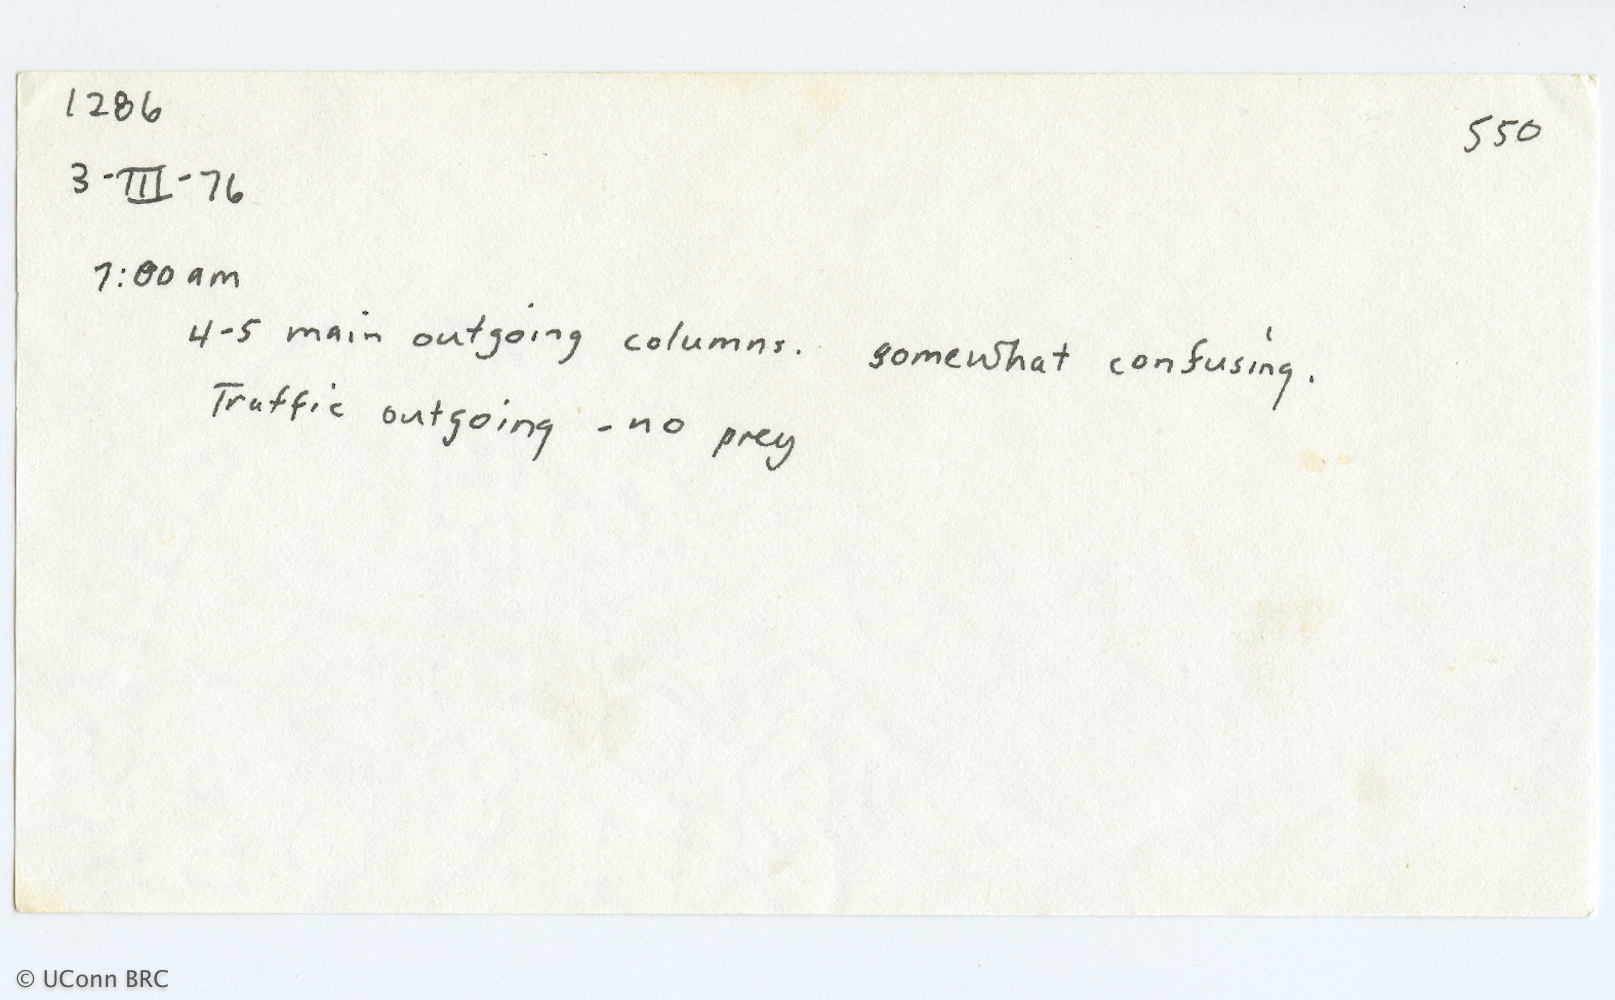 1286
550
3-III-76
7:00 am
4-5 main outgoing columns. somewhat confusing.
Traffic outgoing - no prey
© UConn BRC